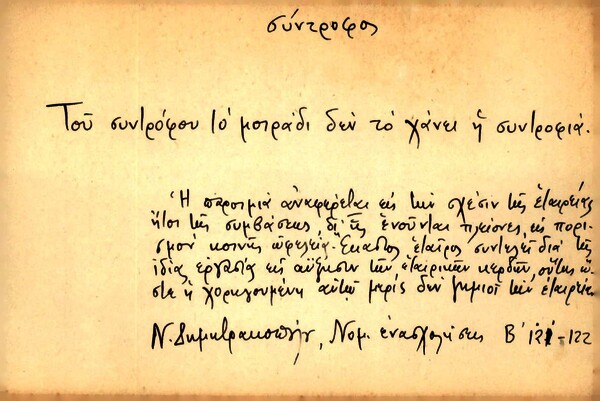 σύντροφος
Τοῦ συντρόφου τό μοιράδι δέν τό χάνει ἡ συντροφιά.
Ἡ παροιμία ἀναφέρεται εἰς τήν σχέσιν τῆς ἑταιρείας
ἤτοι τῆς συμβάσεως, δι' ἧς ἑνοῦνται πλείονες εἰς πορι-
σμόν κοινῆς ὠφελείας. Ἕκαστος ἑταῖρος συντελεῖ διά τῆς
ἰδίας ἐργασίας εἰς αὔξησιν τῶν ἑταιρικῶν κερδῶν, οὕτως ὥ-
στε ἡ χορηγουμένη αὐτῷ μερίς δέν ζημιοῖ τήν ἑταιρείαν
Ν. Δημητρακοπούλου, Νομ. ἐνασχολήσεις Β' 121-122